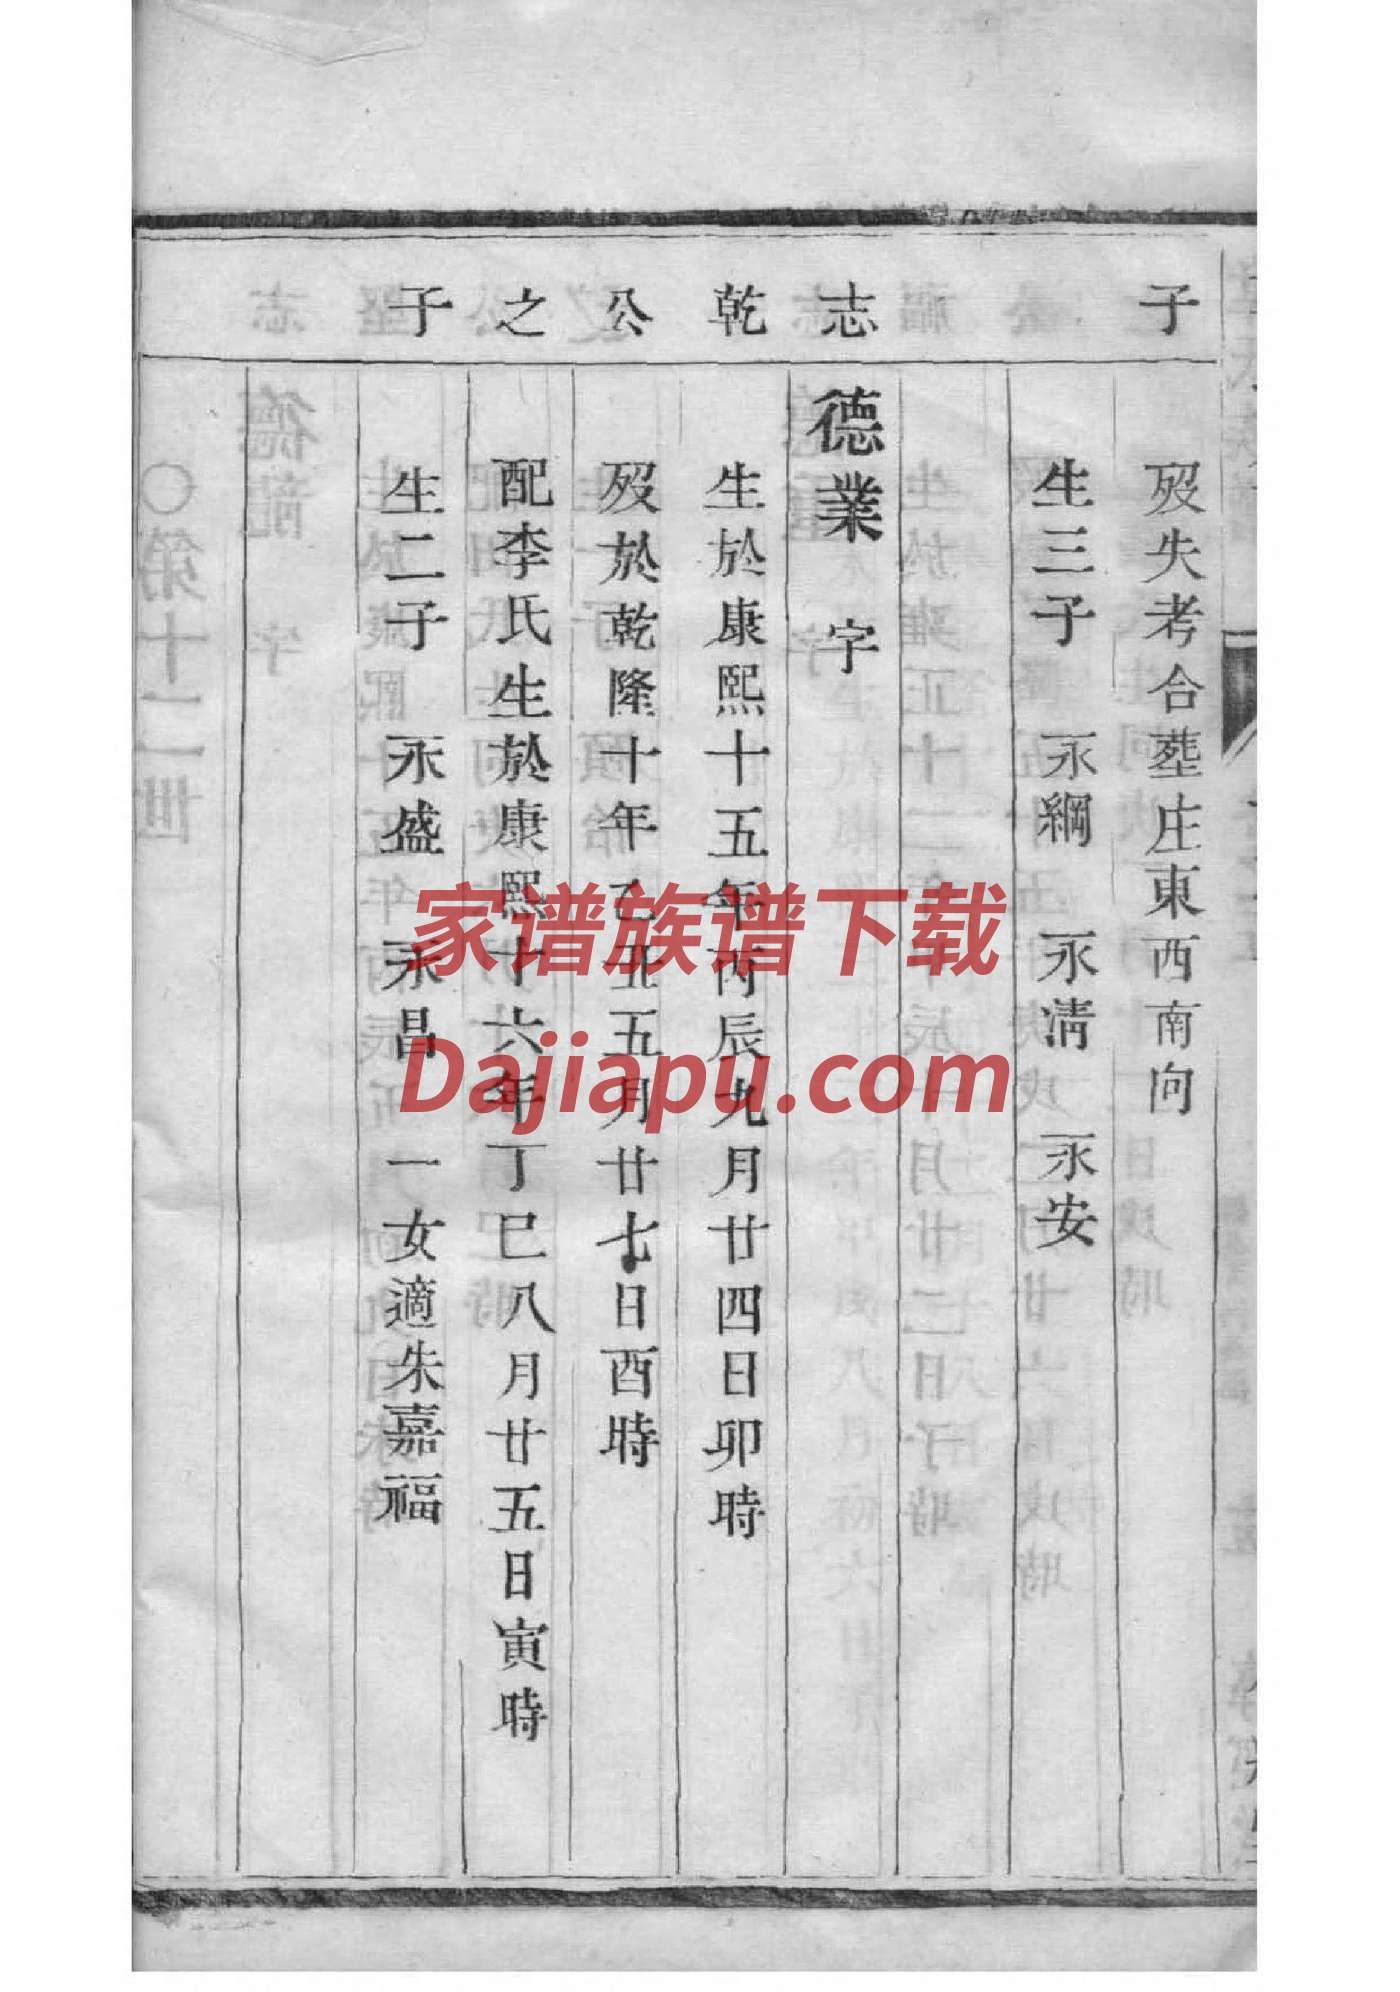 子
歿失考合塟庄東西南向
生三子 永綱 永清 永安
志
德業 字
乾
生於康熙十五年丙辰九月廿四日卯時
公
歿於乾隆十年乙丑五月廿七日酉時
之
配李氏生於康熙十六年丁巳八月廿五日寅時
子
生二子 永盛 永昌 一女適朱嘉福
家谱族谱下载
Dajiapu.com